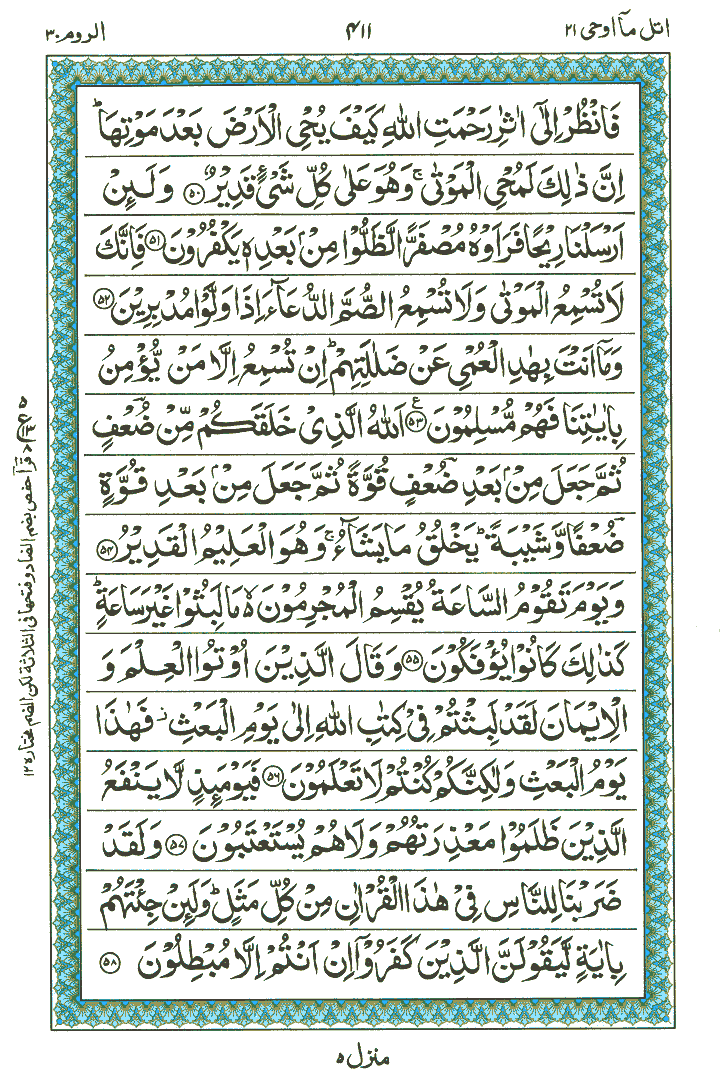 اتل مآ اوحی ۲۱
۴۱۱
الروم ۳۰
فَانْظُرْ اِلٰۤی اٰثٰرِ رَحْمَتِ اللّٰهِ كَیْفَ یُحْیِ الْاَرْضَ بَعْدَ مَوْتِهَاؕ
اِنَّ ذٰلِكَ لَمُحْیِ الْمَوْتٰیۚ وَهُوَ عَلٰی كُلِّ شَیْءٍ قَدِیْرٌ ﴿۵۰﴾ وَ لَىِٕنْ
اَرْسَلْنَا رِیْحًا فَرَاَوْهُ مُصْفَرًّا لَّظَلُّوْا مِنْۢ بَعْدِهٖ یَكْفُرُوْنَ ﴿۵۱﴾ فَاِنَّكَ
لَا تُسْمِعُ الْمَوْتٰی وَ لَا تُسْمِعُ الصُّمَّ الدُّعَآءَ اِذَا وَلَّوْا مُدْبِرِیْنَ ﴿۵۲﴾
وَ مَاۤ اَنْتَ بِهٰدِ الْعُمْیِ عَنْ ضَلٰلَتِهِمْؕ اِنْ تُسْمِعُ اِلَّا مَنْ یُّؤْمِنُ
بِاٰیٰتِنَا فَهُمْ مُّسْلِمُوْنَ ﴿۵۳﴾ ع اَللّٰهُ الَّذِیْ خَلَقَكُمْ مِّنْ ضُؔعْفٍ
ثُمَّ جَعَلَ مِنْۢ بَعْدِ ضُؔعْفٍ قُوَّةً ثُمَّ جَعَلَ مِنْۢ بَعْدِ قُوَّةٍ
ضُؔعْفًا وَّ شَیْبَةًؕ یَخْلُقُ مَا یَشَآءُۚ وَ هُوَ الْعَلِیْمُ الْقَدِیْرُ ﴿۵۴﴾
وَ یَوْمَ تَقُوْمُ السَّاعَةُ یُقْسِمُ الْمُجْرِمُوْنَ ۙ۬ مَا لَبِثُوْا غَیْرَ سَاعَةٍؕ
كَذٰلِكَ كَانُوْا یُؤْفَكُوْنَ ﴿۵۵﴾ وَ قَالَ الَّذِیْنَ اُوْتُوا الْعِلْمَ وَ
الْاِیْمَانَ لَقَدْ لَبِثْتُمْ فِیْ كِتٰبِ اللّٰهِ اِلٰی یَوْمِ الْبَعْثِ ؗ فَهٰذَا
یَوْمُ الْبَعْثِ وَ لٰكِنَّكُمْ كُنْتُمْ لَا تَعْلَمُوْنَ ﴿۵۶﴾ فَیَوْمَىِٕذٍ لَّا یَنْفَعُ
الَّذِیْنَ ظَلَمُوْا مَعْذِرَتُهُمْ وَ لَا هُمْ یُسْتَعْتَبُوْنَ ﴿۵۷﴾ وَ لَقَدْ
ضَرَبْنَا لِلنَّاسِ فِیْ هٰذَا الْقُرْاٰنِ مِنْ كُلِّ مَثَلٍؕ وَ لَىِٕنْ جِئْتَهُمْ
بِاٰیَةٍ لَّیَقُوْلَنَّ الَّذِیْنَ كَفَرُوْۤا اِنْ اَنْتُمْ اِلَّا مُبْطِلُوْنَ ﴿۵۸﴾
قرأ حفص بضم الضاد و فتحها فی الثلاثة لکن الضم مختاره ۱۲
منزل ۵